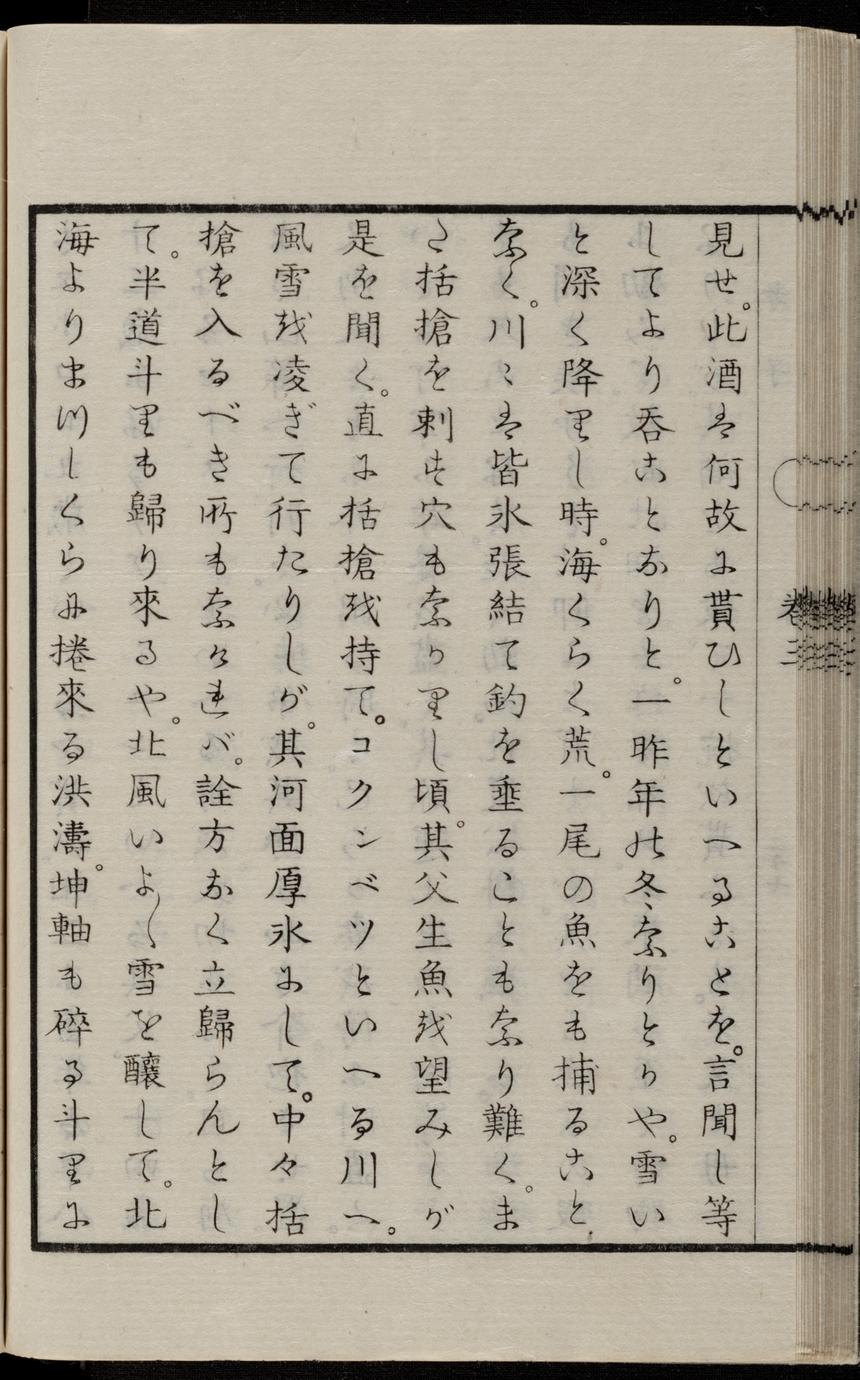 見せ。此酒は何故に貰ひしといへることを。言聞し等
してより呑ことなりと。一昨年の冬なりとかや。雪い
と深く降りし時。海くらく荒。一尾の魚をも捕ること
なく。川々は皆氷張結て釣を垂ることもなり難く。ま
た括槍を刺す穴もなかりし頃。其父生魚を望みしが
是を聞く。直に括槍を持て。コクンベツといへる川へ。
風雪を凌ぎて行たりしが。其河面厚氷にして。中々括
槍を入るべき所もなければ。詮方なく立歸らんとし
て。半道斗りも歸り來るや。北風いよ〱雪を釀して。北
海よりまつしくらに捲來る洪濤。坤軸も碎る斗りに
卷三